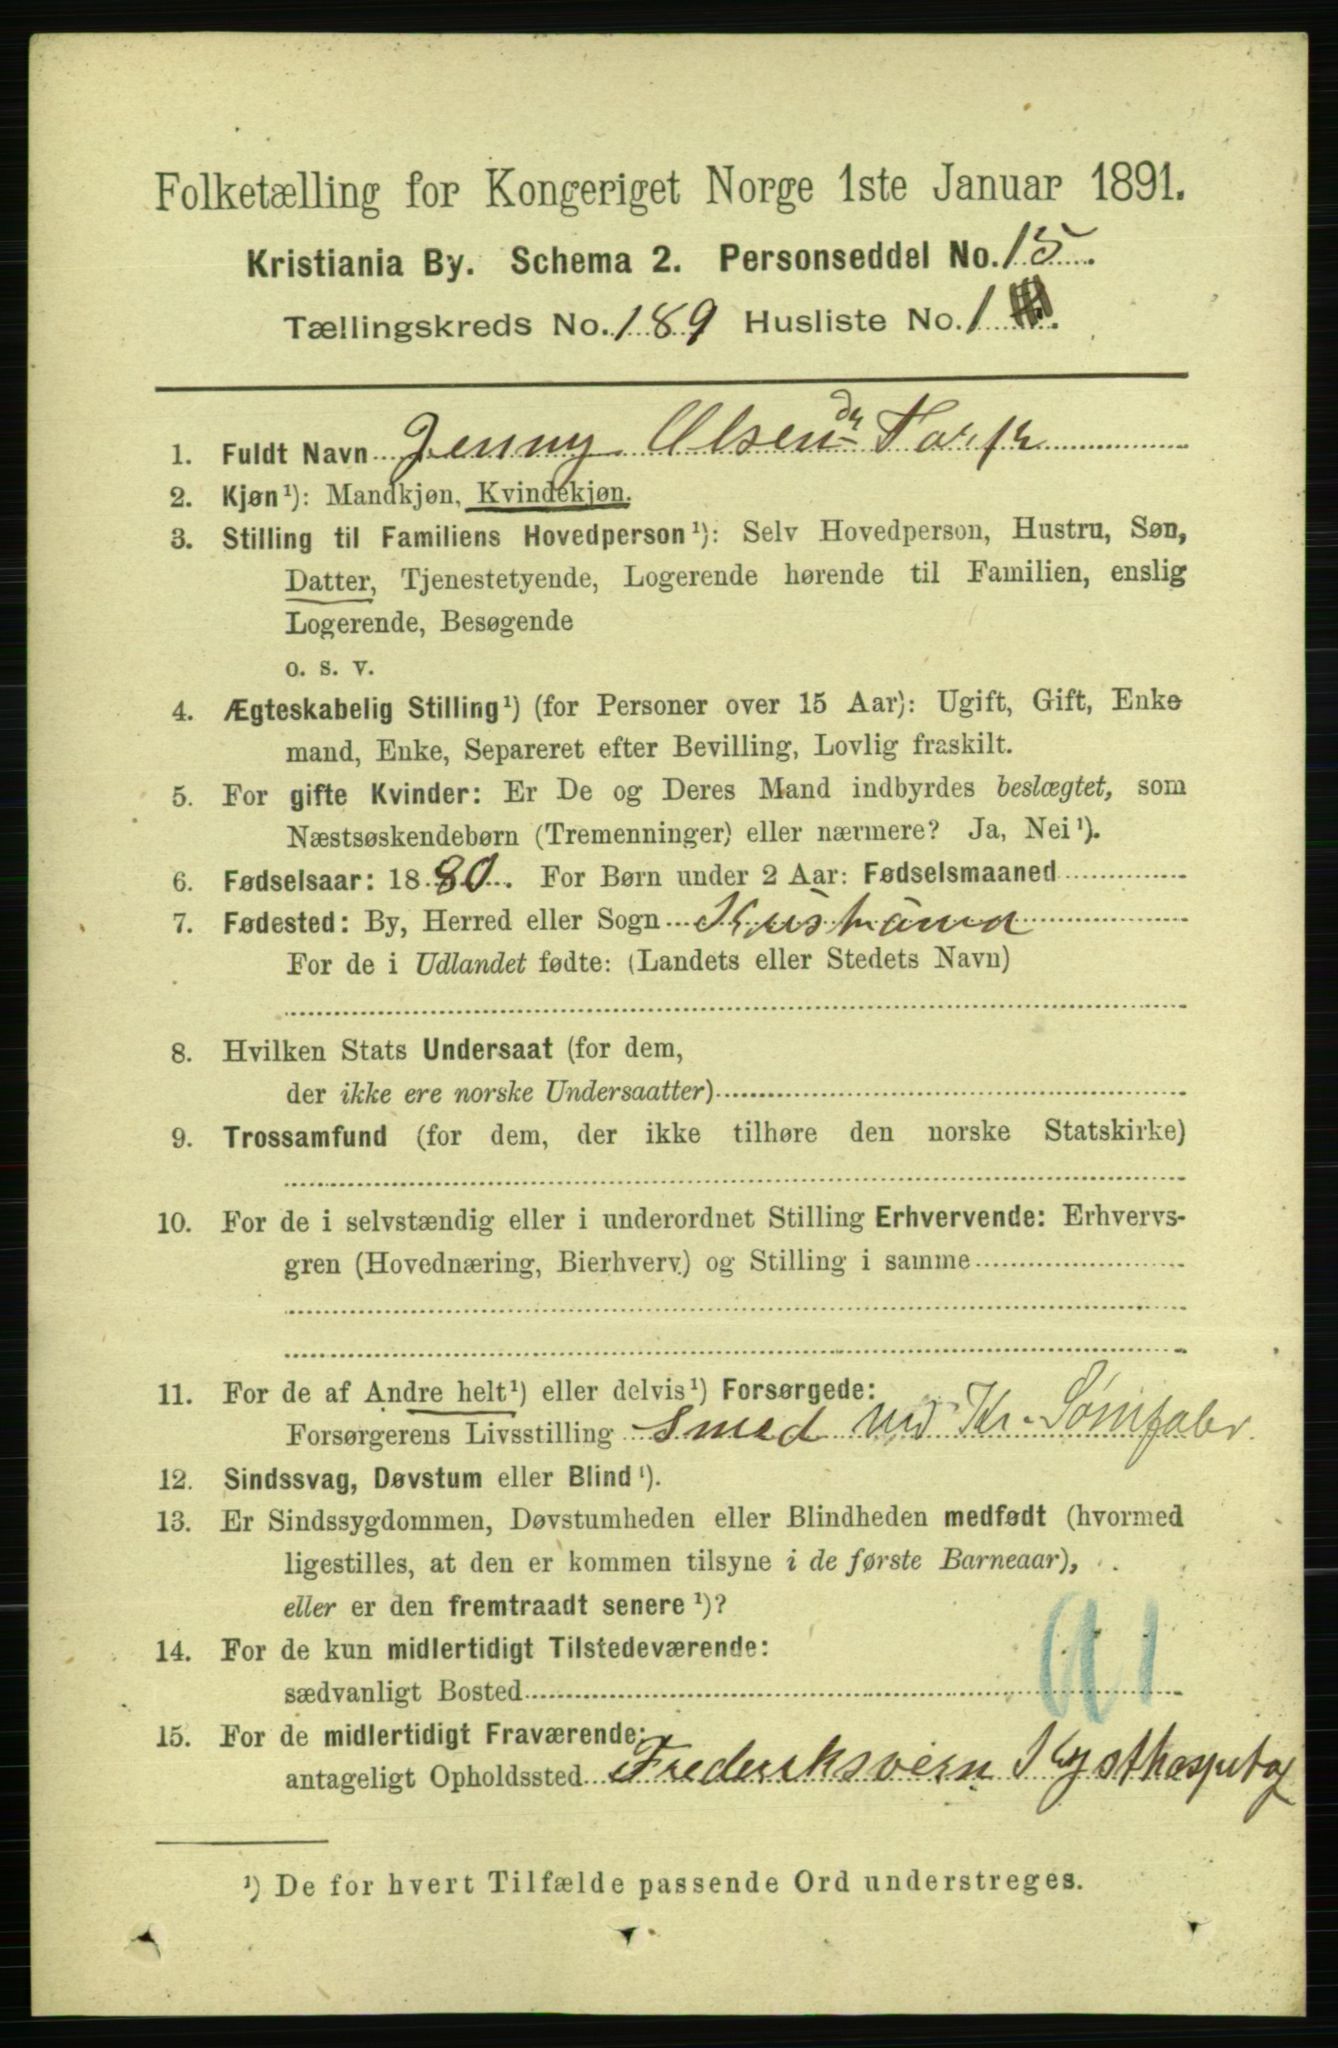 Folketælling for Kongeriget Norge 1ste Januar 1891.
Kristiania By. Schema 2. Personseddel No. 15.
Tællingskreds No. 189 Husliste No. 1
1. Fuldt Navn Jenny Olsen
2. Kjøn¹): Mandkjøn, Kvindekjøn.
3. Stilling til Familiens Hovedperson¹): Selv Hovedperson, Hustru, Søn,
Datter, Tjenestetyende, Logerende hørende til Familien, enslig
Logerende, Besøgende
o. s. v.
4. Ægteskabelig Stilling¹) (for Personer over 15 Aar): Ugift, Gift, Enke
mand, Enke, Separeret efter Bevilling, Lovlig fraskilt.
5. For gifte Kvinder: Er De og Deres Mand indbyrdes beslægtet, som
Næstsøskendebørn (Tremenninger) eller nærmere? Ja, Nei¹).
6. Fødselsaar: 1880. For Børn under 2 Aar: Fødselsmaaned
7. Fødested: By, Herred eller Sogn
For de i Udlandet fødte: (Landets eller Stedets Navn)
8. Hvilken Stats Undersaat (for dem,
der ikke ere norske Undersaatter)
9. Trossamfund (for dem, der ikke tilhøre den norske Statskirke)
10. For de i selvstændig eller i underordnet Stilling Erhvervende: Erhvervs-
gren (Hovednæring, Bierhverv) og Stilling i samme
11. For de af Andre helt¹) eller delvis¹) Forsørgede:
Forsørgerens Livsstilling Smed ved Kr. Sømfabr.
12. Sindssvag, Døvstum eller Blind¹).
13. Er Sindssygdommen, Døvstumheden eller Blindheden medfødt (hvormed
ligestilles, at den er kommen tilsyne i de første Barneaar),
eller er den fremtraadt senere¹)?
14. For de kun midlertidigt Tilstedeværende:
sædvanligt Bosted
15. For de midlertidigt Fraværende:
antageligt Opholdssted Frederiksværn Kysthospital
¹) De for hvert Tilfælde passende Ord understreges.